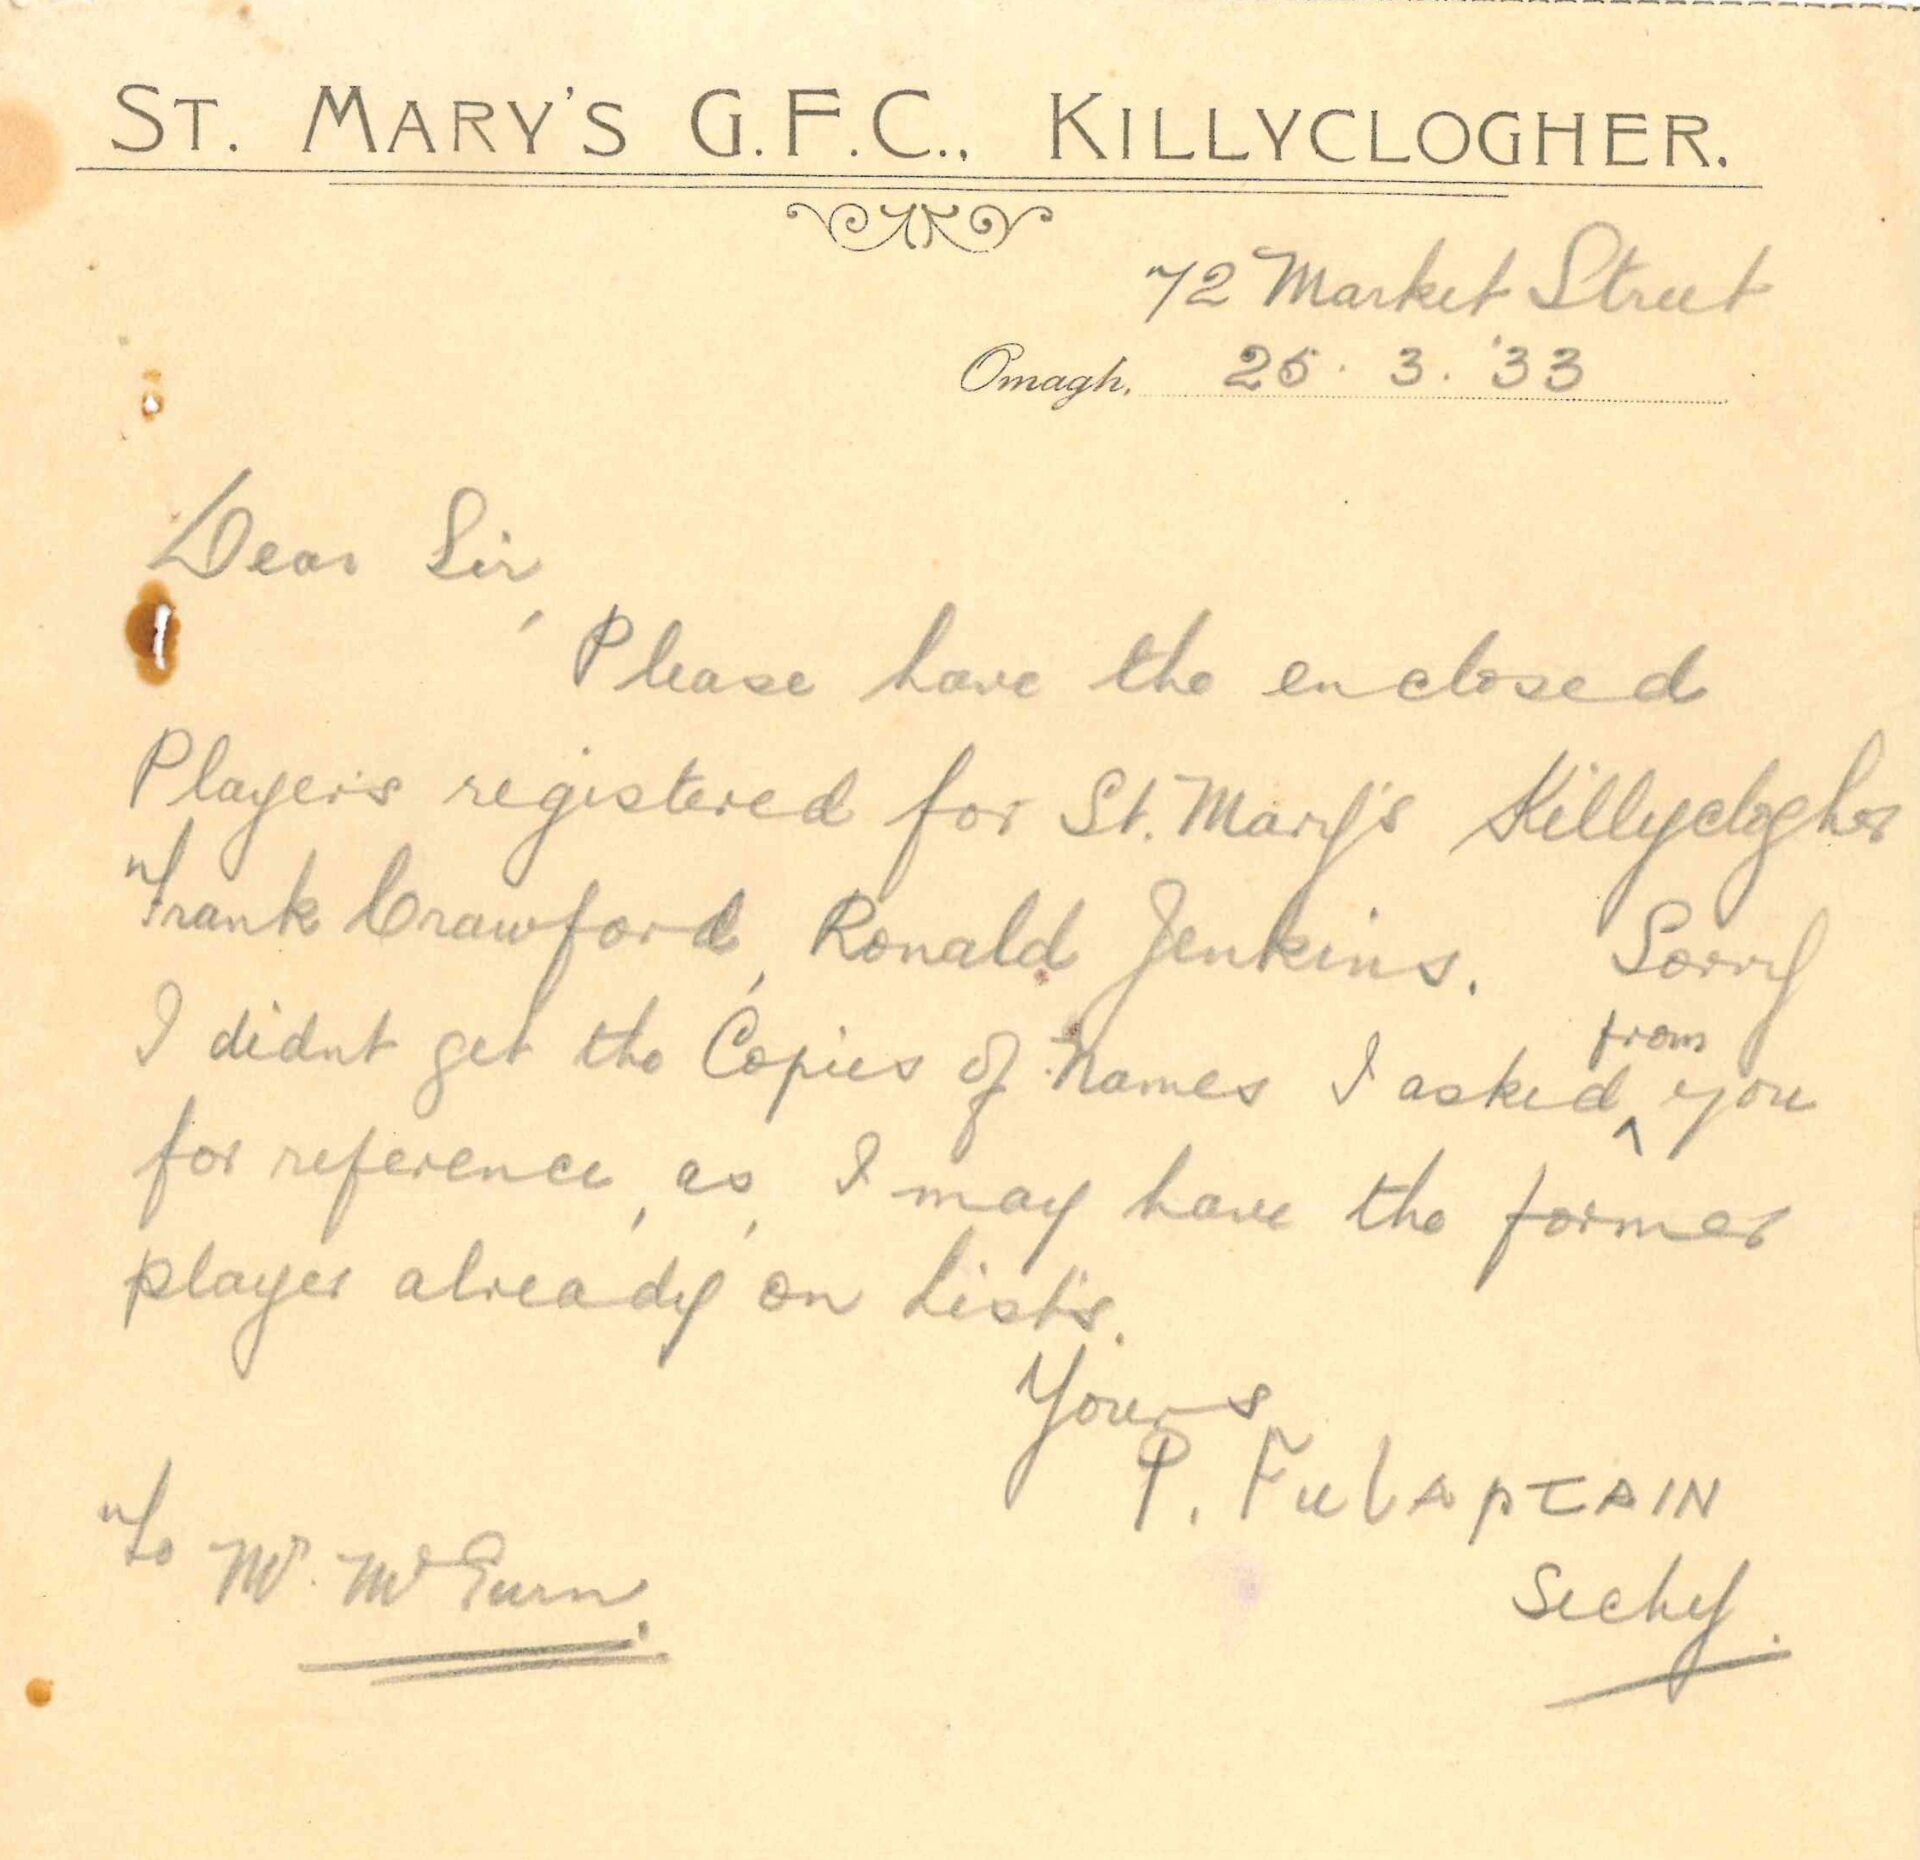 ST. MARY'S G.F.C., KILLYCLOGHER.
72 Market Street
Omagh, 25. 3. '33
Dear Sir,
Please have the enclosed
Players registered for St. Mary's Killyclogher
Frank Crawford, Ronald Jenkins. Sorry
I didnt get the Copies of Names I asked from you
for reference, as, I may have the former
player already on Lists.
Yours
P.
Secty.
To Mr.